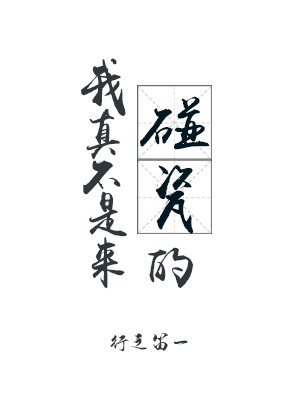 我真不是来
碰瓷的
行走笛一